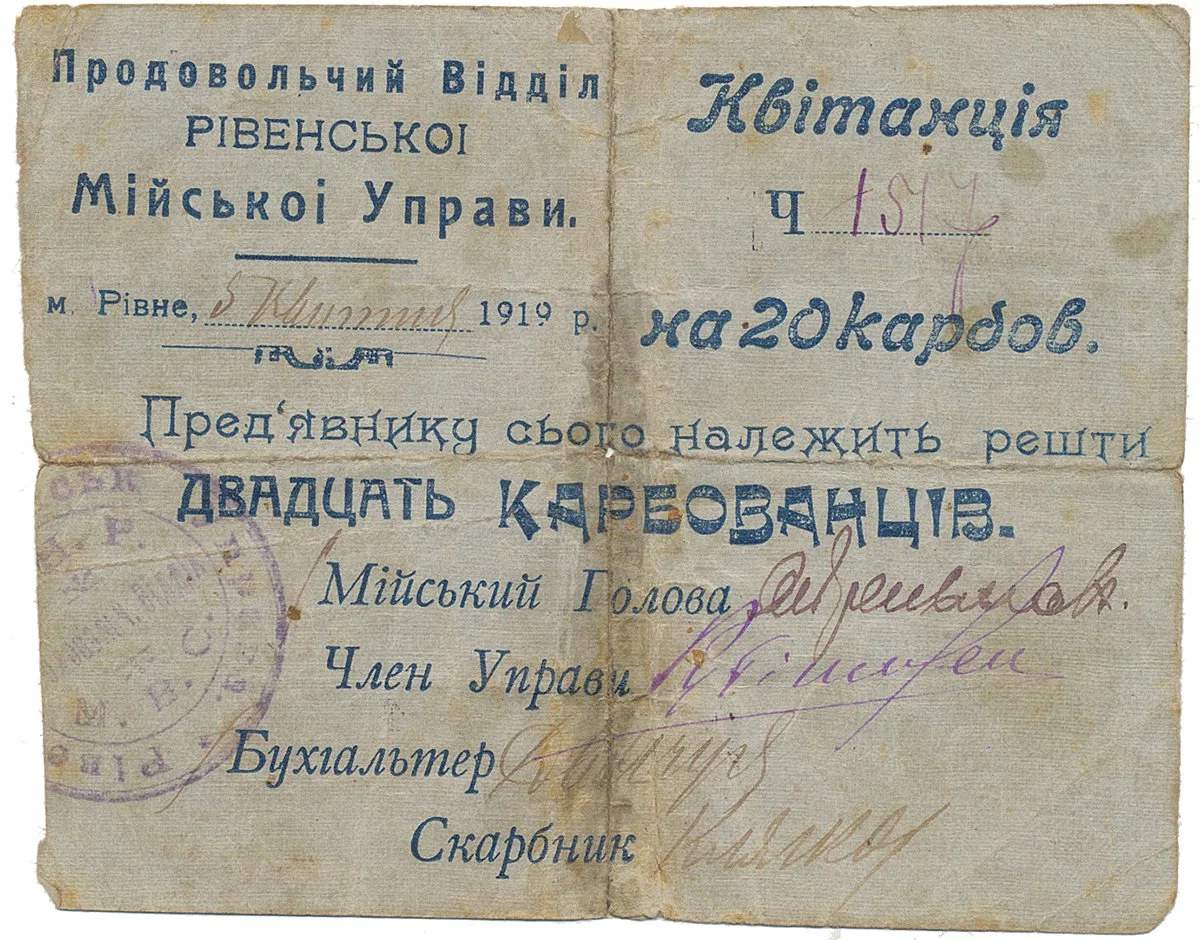 Продовольчий Відділ
РІВЕНСЬКОІ
Мійськоі Управи.
м. Рівне, 5 Квітня 1919 р.
Квітанція
Ч 1517
на 20 карбов.
Пред'явнику сього належить решти
ДВАДЦАТЬ КАРБОВАНЦІВ.
Мійський Голова
Член Управи
Бухгальтер
Скарбник